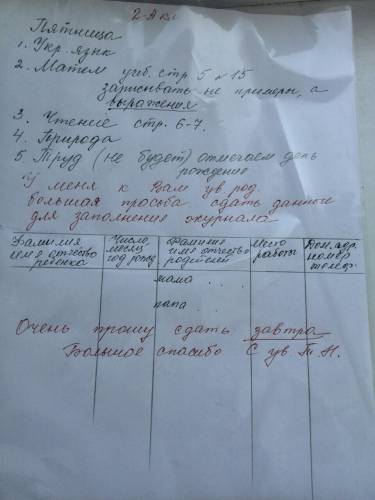 2-А кл
Пятница
1. Укр. язык
2. Матем учеб. стр. 5 № 15
записывать не примеры, а
выражения
3. Чтение стр. 6-7.
4. Природа
5 Труд (не будет) отмечаем день
рождение
У меня к Вам ув. род.
большая просьба сдать данные
для заполнения журнала
Фамилия имя отчество ребенка
Число, месяц, год рожд
Фамилия имя отчество родителей
Место работы
Дом. адр. номер телеф.
мама
папа
Очень прошу сдать завтра
Большое спасибо С ув Т. Н.